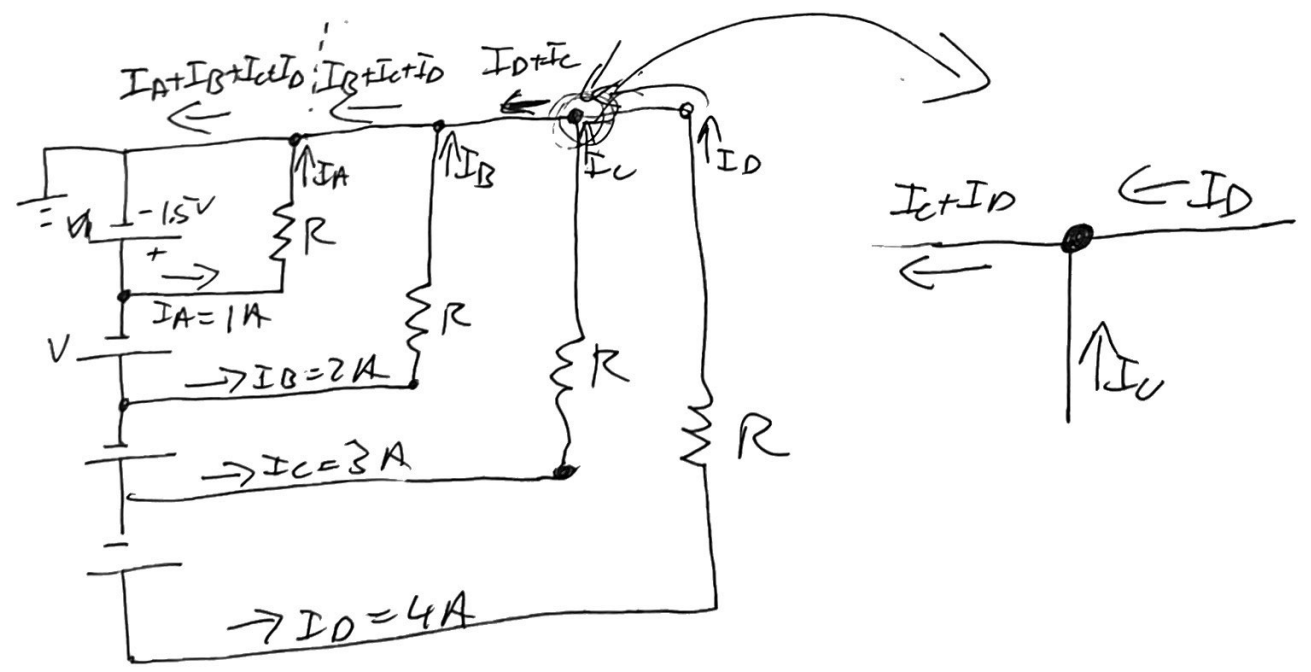 I_A+I_B+I_C+I_D
I_B+I_C+I_D
I_D+I_C
I_A
I_B
I_C
I_D
-1.5V
+
R
I_A=1A
V
R
I_B=2A
R
I_C=3A
R
I_D=4A
I_C+I_D
I_D
I_C